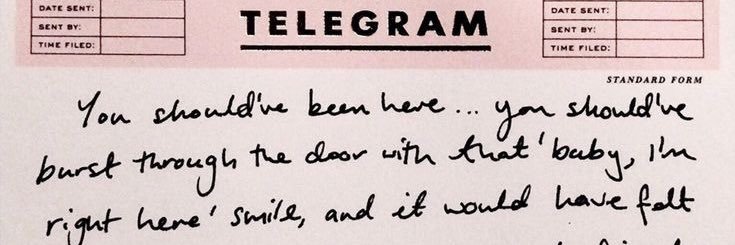 DATE SENT:
SENT BY:
TIME FILED:
TELEGRAM
DATE SENT:
SENT BY:
TIME FILED:
STANDARD FORM
You should've been here... you should've
burst through the door with that 'baby, I'm
right here' smile, and it would have felt